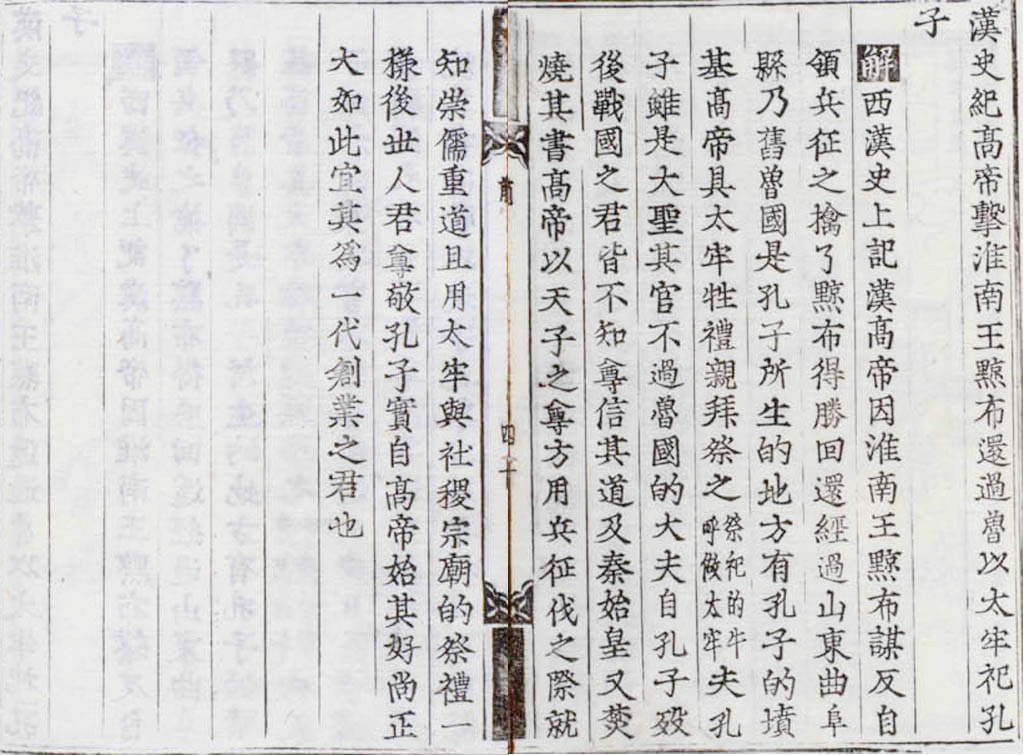 漢史紀髙帝擊淮南王黥布還過魯以太牢祀孔
子
解西漢史上記漢髙帝因淮南王黥布謀反自
領兵征之擒了黥布得勝回還經過山東曲阜
縣乃舊魯國是孔子所生的地方有孔子的墳
基髙帝具太牢牲禮親拜祭之祭祀的牛呼做太牢夫孔
子雖是大聖其官不過魯國的大夫自孔子歿
後戰國之君皆不知尊信其道及秦始皇又焚
燒其書髙帝以天子之尊方用兵征伐之際就
前
四十
知崇儒重道且用太牢與社稷宗廟的祭禮一
樣後世人君尊敬孔子實自髙帝始其好尚正
大如此宜其為一代創業之君也